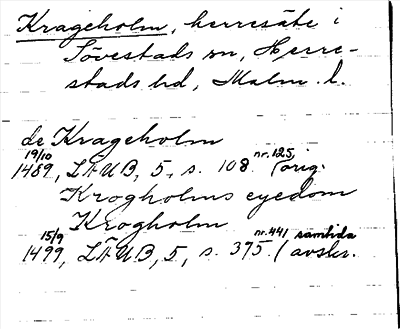 Krageholm, herresäte i
Sövestads sn, Herre-
stads hd, Malm. l.
de Krageholm
19/10 1489, LÄUB, 5, s. 108 nr. 125 (orig.
Krogholms eyedom
Krogholm
15/9 1499, LÄUB, 5, s. 375. nr. 441 (samtida avskr.